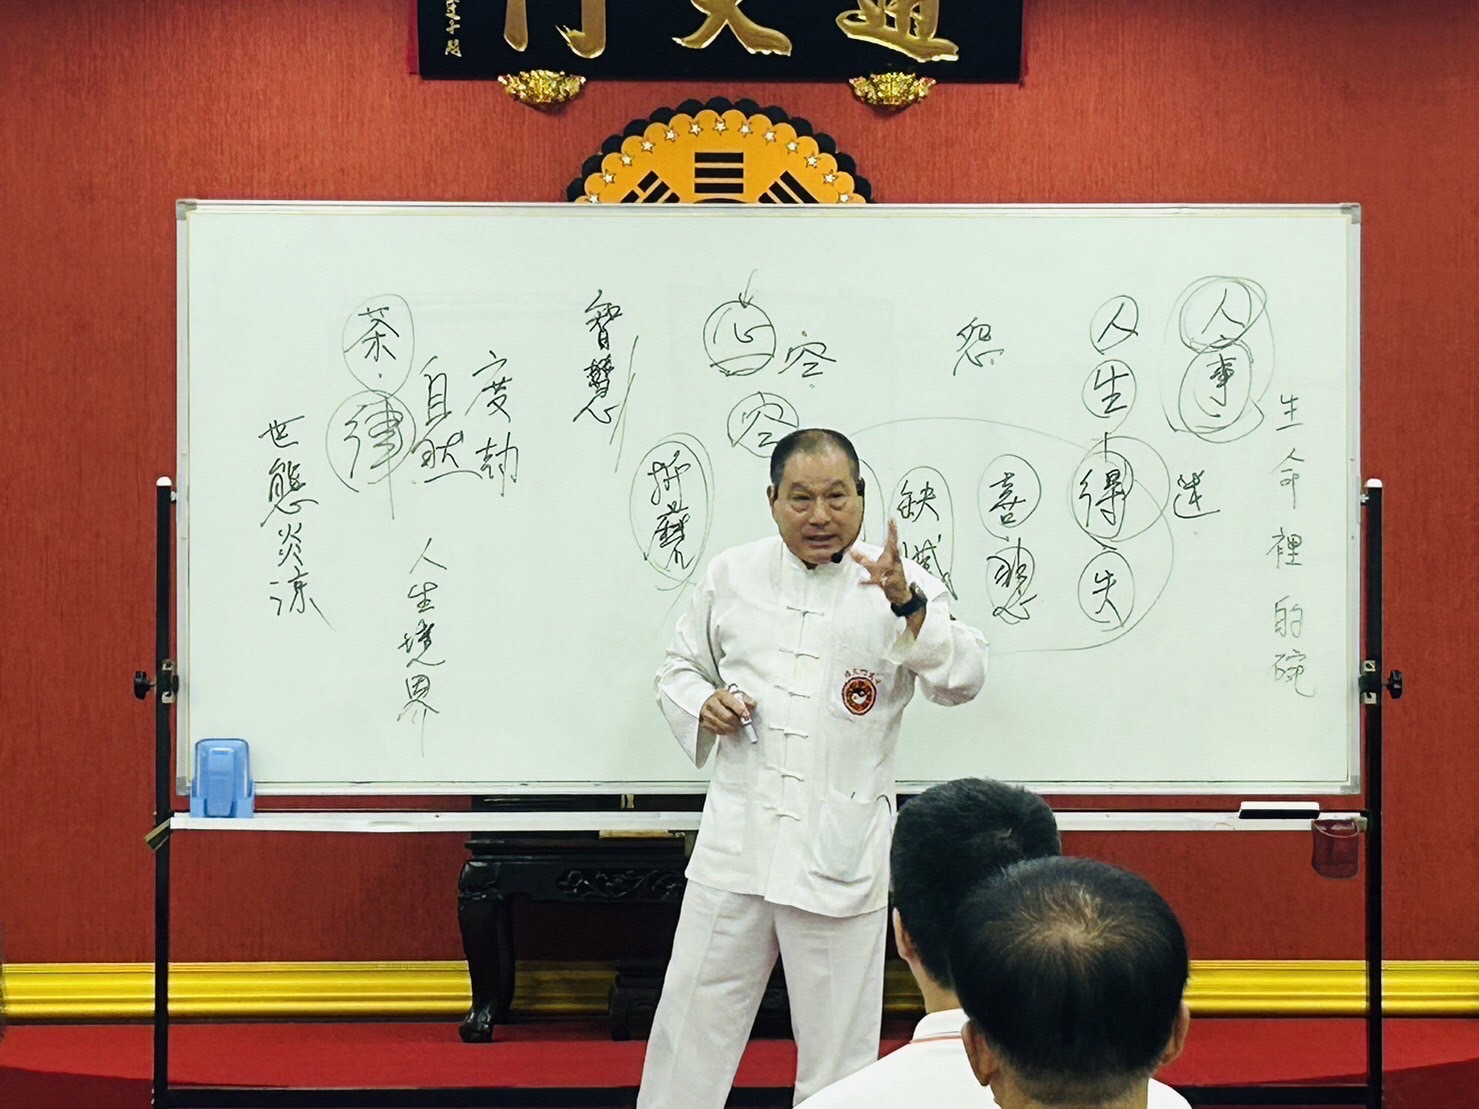 通天門
生命裡的碗
人事
迷
人生
得失
怨
喜悲
缺憾
心
容
容
折磨
智慧
度劫
自然
人生境界
茶
律
世態炎涼